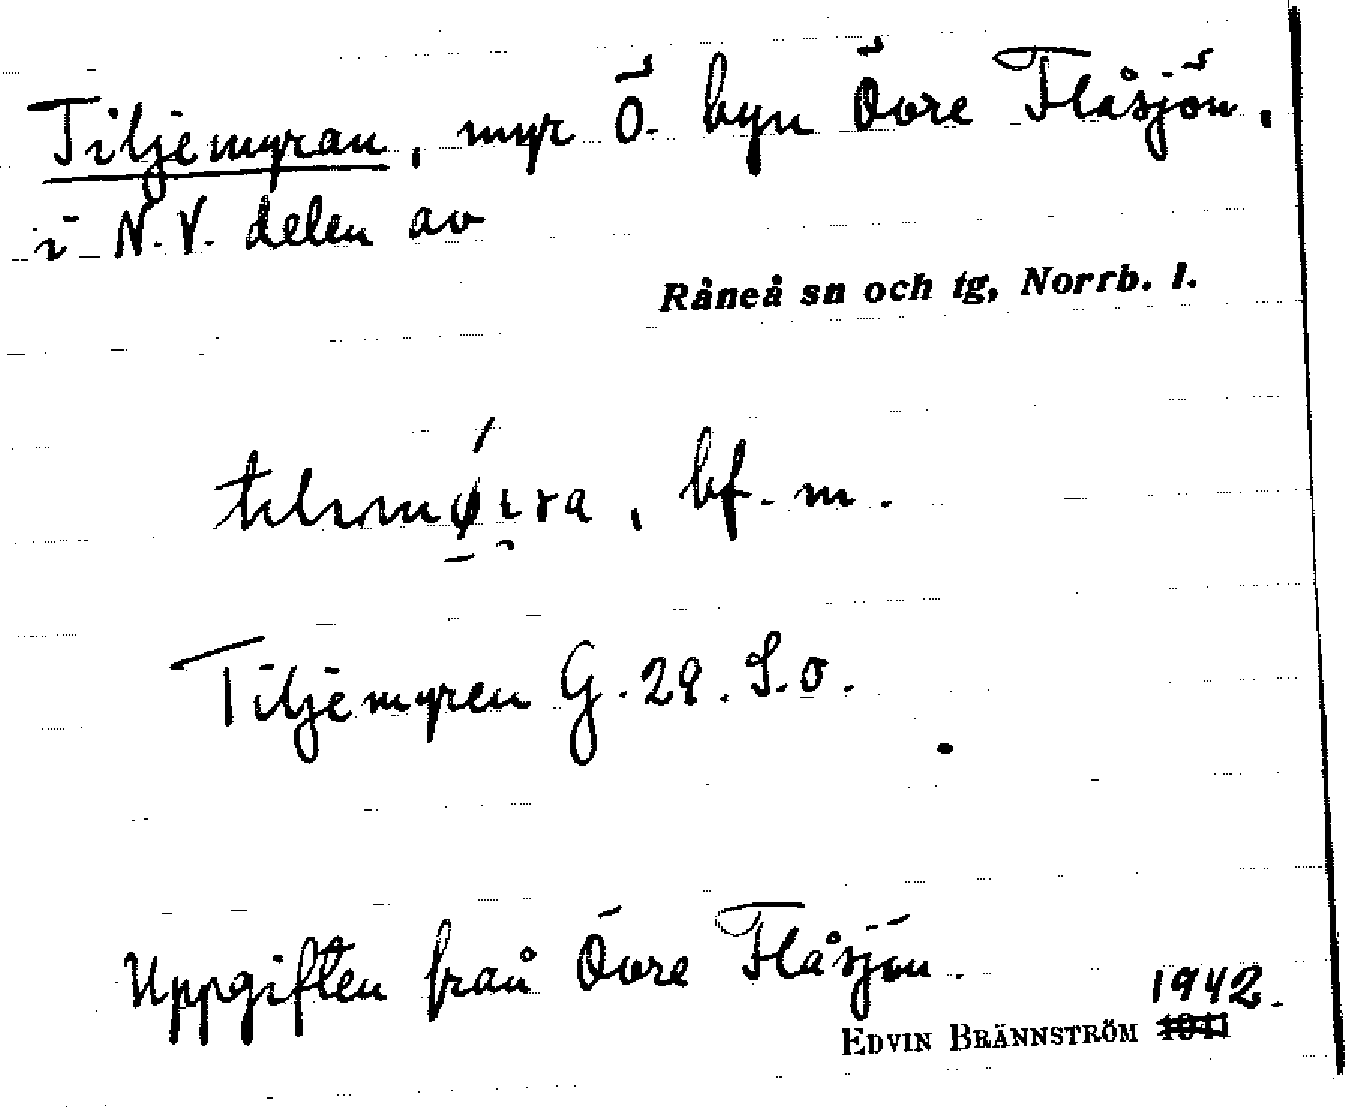 Tiljemyran, myr Ö. byn Övre Flåsjön,
i N.V. delen av
Råneå sn och tg, Norrb. l.
bf. m.
Tiljemyren G. 28. S.o.
Uppgiften från Övre Flåsjön.
1942.
EDVIN BRÄNNSTRÖM 1941